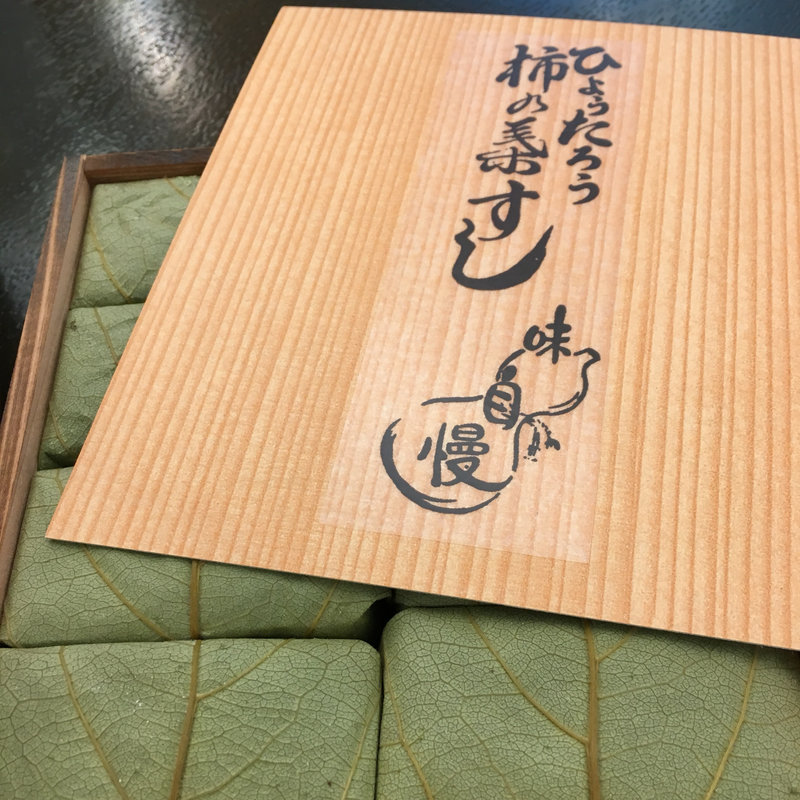 ひょうたろう
柿の葉すし
味自慢